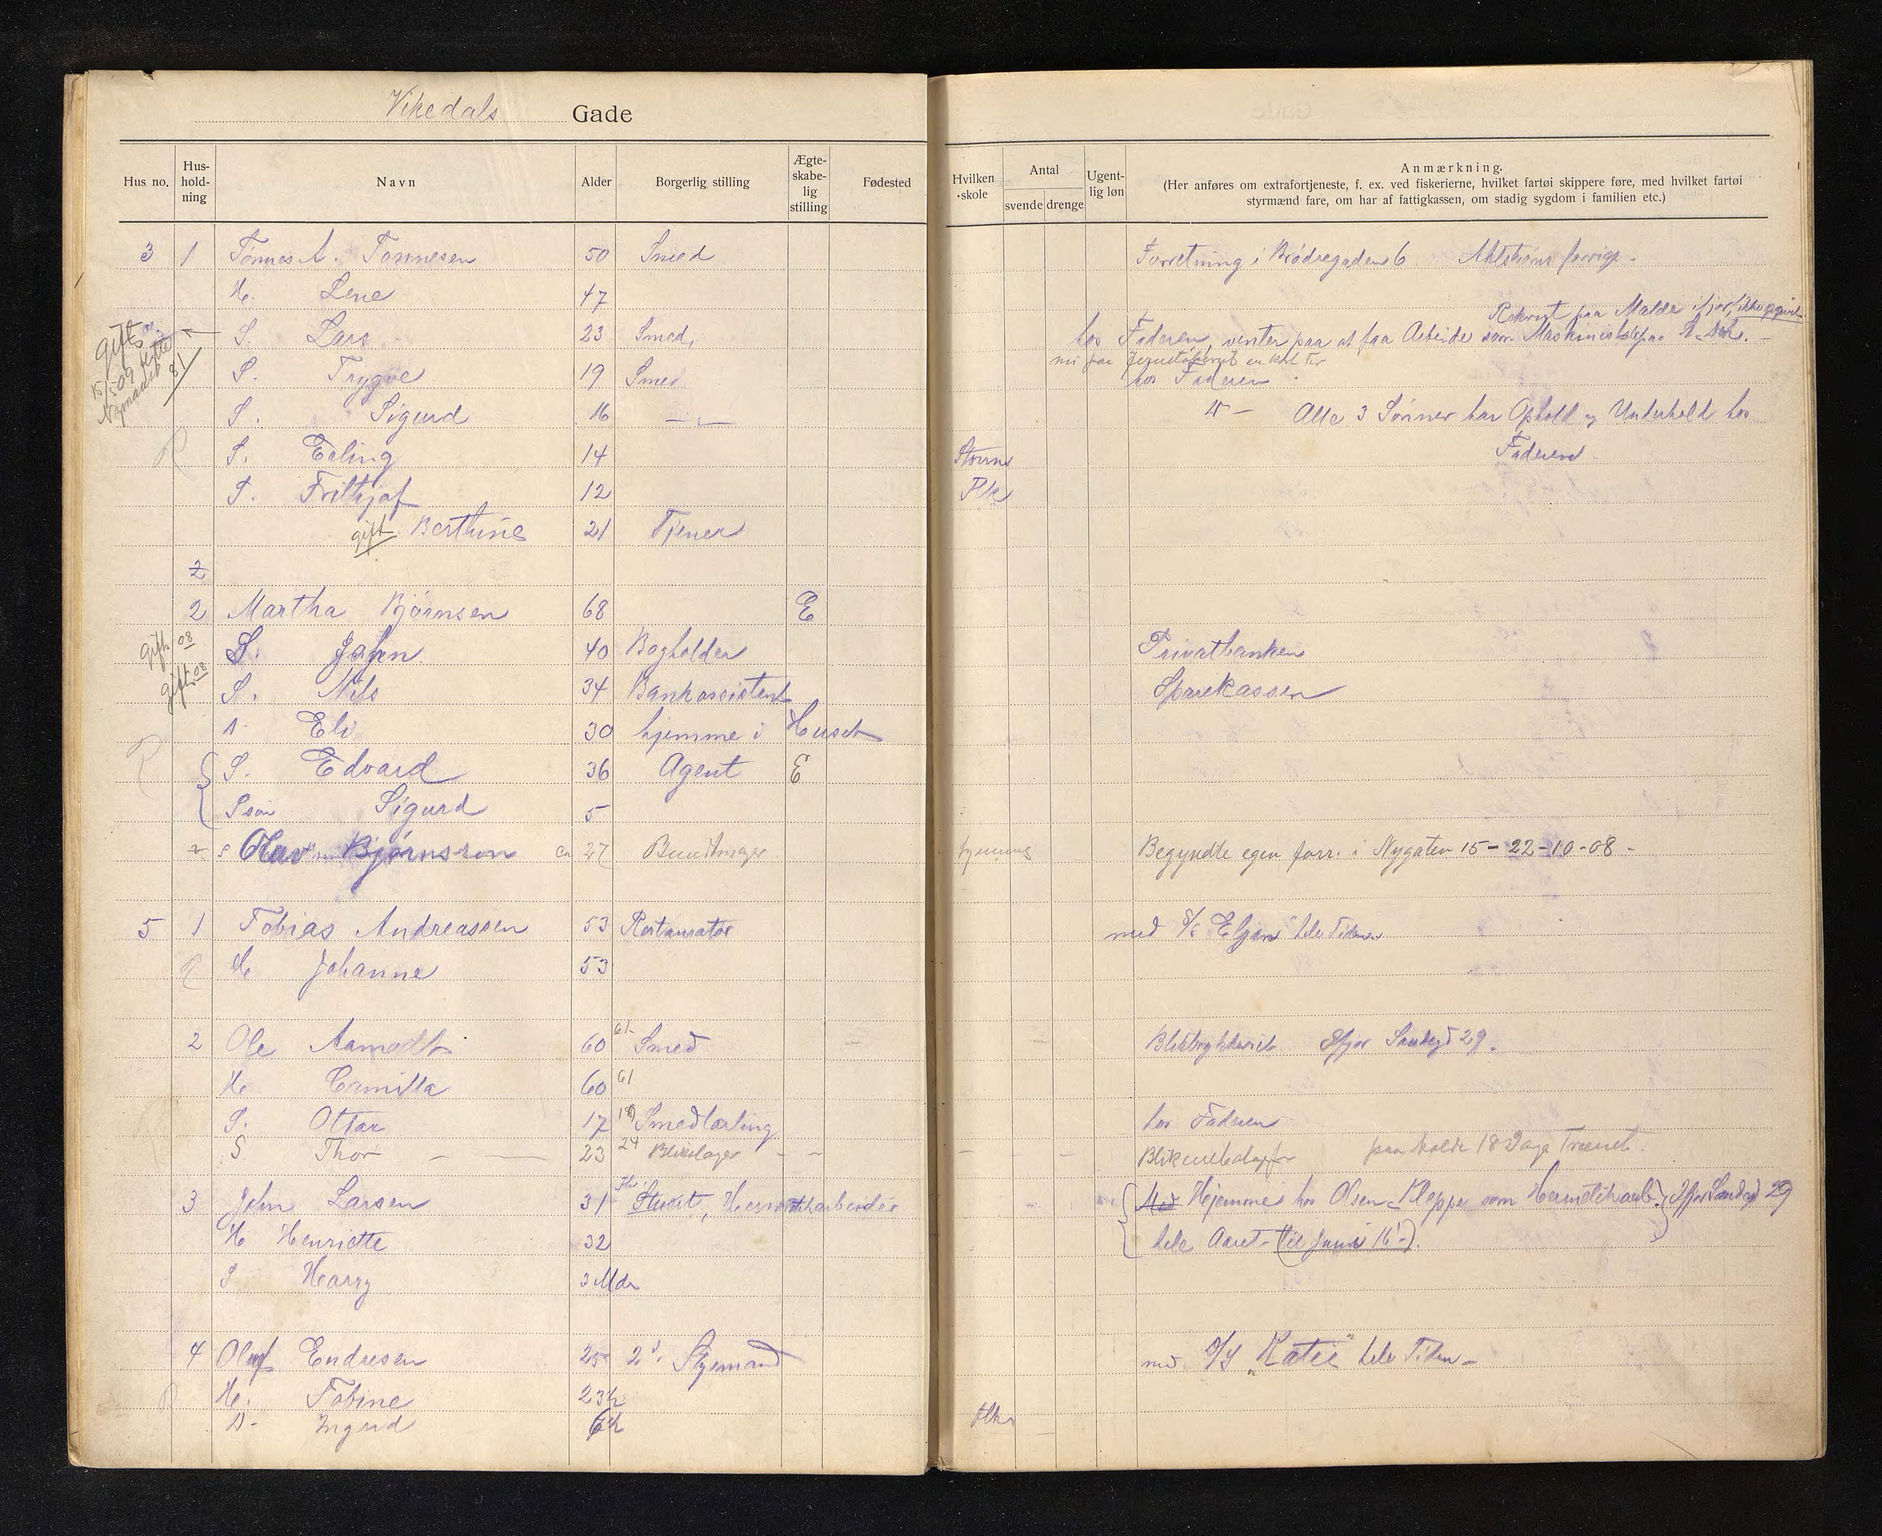 Vikedals Gade
Hus no. Hus-hold-ning Navn Alder Borgerlig stilling Ægte-skabe-lig stilling Fødested
Hvilken skole Antal svende drenge Ugent-lig løn Anmærkning.
(Her anføres om extrafortjeneste, f. ex. ved fiskerierne, hvilket fartøi skippere føre, med hvilket fartøi
styrmænd fare, om har af fattigkassen, om stadig sygdom i familien etc.)
3 1 Tønnes A. Tønnesen 50 Smed Forretning i Brødregaden 6
H. Lene 47
Rekrut paa Malde ifjor, ikke opgivet
gift S. Lars 23 Smed, hos Faderen, venter paa at faa Arbeide som
15/5 09
81
S. Trygve 19 Smed hos Faderen
S. Sigurd 16 — " — " — Alle 3 Sønner har Ophold og Underhold hos
S. Erling 14 Storms Faderen
S. Frithjof 12 Flk
gift Bertine 21 Tjener
2
2 Martha Bjørnsen 68 E
gift 08 S. John 40 Bogholder Privatbanken
gift 08 S. Nils 34 Bankassistent Sparekassen
D. Eli 30 hjemme i Huset
S. Edvard 36 Agent E
S søn Sigurd 5
s Olav Bjørnson ca 27 Buntmager hjemme Begyndte egen forr. i Nygaten 15 - 22-10-08 -
5 1 Tobias Andreassen 53 Restauratør med S/S Eljan" hele Tiden
H. Johanne 53
2 Ole Aamodt 60 61 Smed Ifjor Sandsgd 29.
H. Camilla 60 61
S. Ottar 17 18 Smedlærling hos Faderen
S Thor — — 23 24 Blikslager — — paa Malde 18 Dage
3 John Larsen 31 Stuert, Hermetikarbeider Med Hjemme hos Olsen & Kleppe som Hermetikarb. Ifjor Sandsgd 29
H Henriette 32 hele Aaret - (til Juni 16'-).
S Harry 3 Mdr
4 Oluf Endresen 25 2d. Styrmand med S/S "Katie" hele Tiden -
H. Tobine 23 ½
D. Ingrid 6 ½ Flk